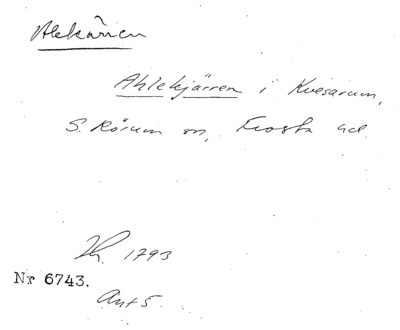 Alekärren
Ahlekjärren i Kvesarum,
S. Rörum sn, Frosta hd.
1793
Nr 6743.
Ant 5.